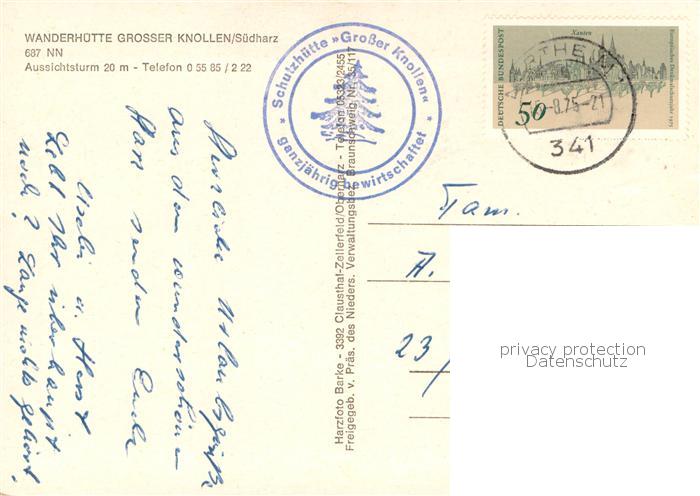 WANDERHÜTTE GROSSER KNOLLEN/Südharz
687 NN
Aussichtsturm 20 m - Telefon 0 55 85 / 2 22
Schutzhütte »Großer Knollen«
* ganzjährig bewirtschaftet *
Xanten
DEUTSCHE BUNDESPOST
50
Europäisches Denkmalschutzjahr 1975
-8.75-21
341
Herzliche Urlaubsgrüße
aus dem wunderschönen
Harz senden Euch
u. Horst
Lebt Ihr überhaupt
noch? Lange nichts gehört.
Harzfoto Barke - 3392 Clausthal-Zellerfeld/Oberharz - Telefon 05323/2455
Freigegeb. v. Präs. des Nieders. Verwaltungsbez. Braunschweig Nr. /117
Fam.
A.
23/
privacy protection
Datenschutz